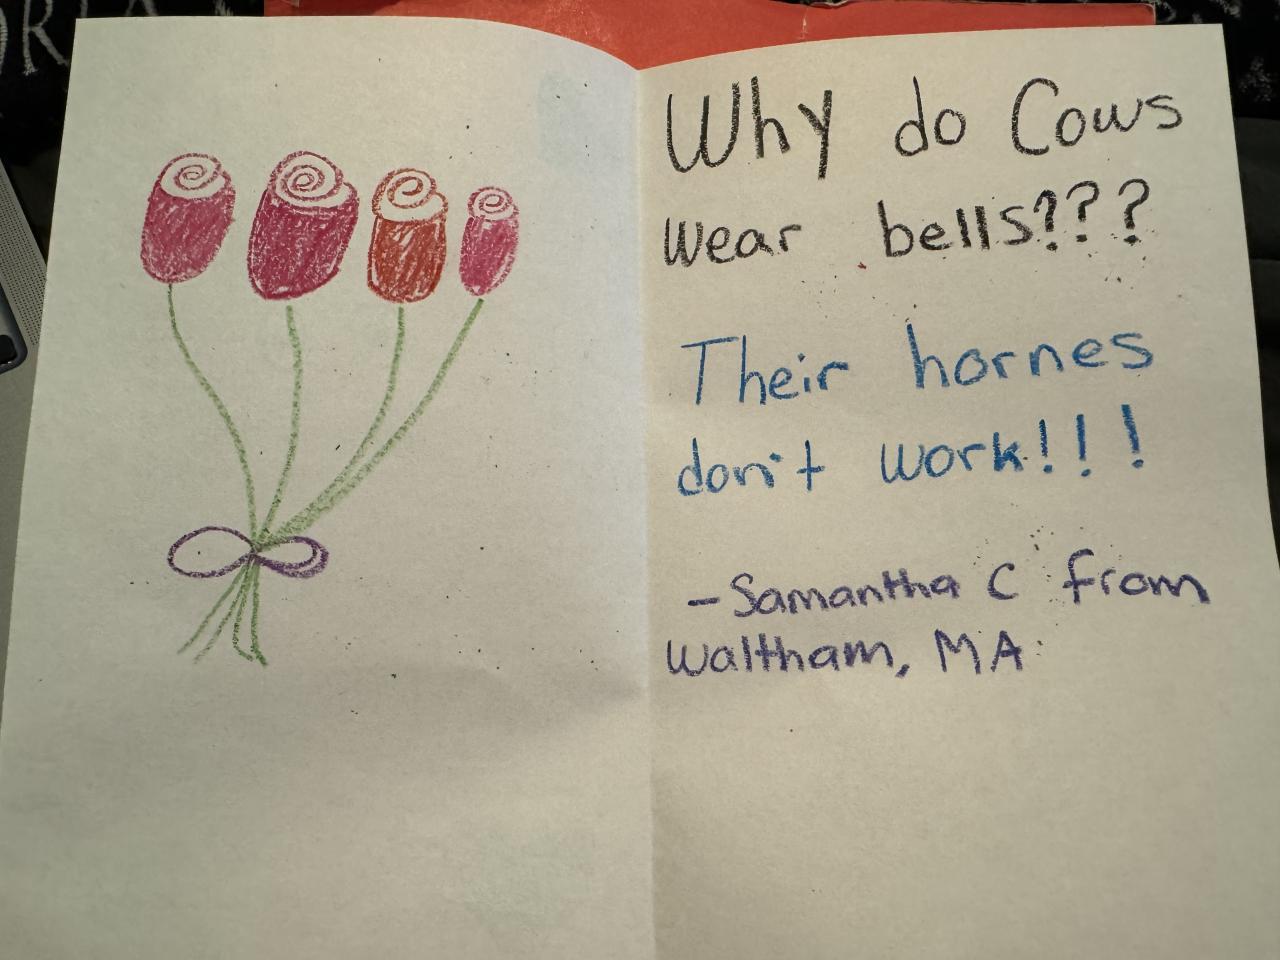 Why do Cows
wear bells???
Their hornes
don't work!!!
-Samantha C from
Waltham, MA